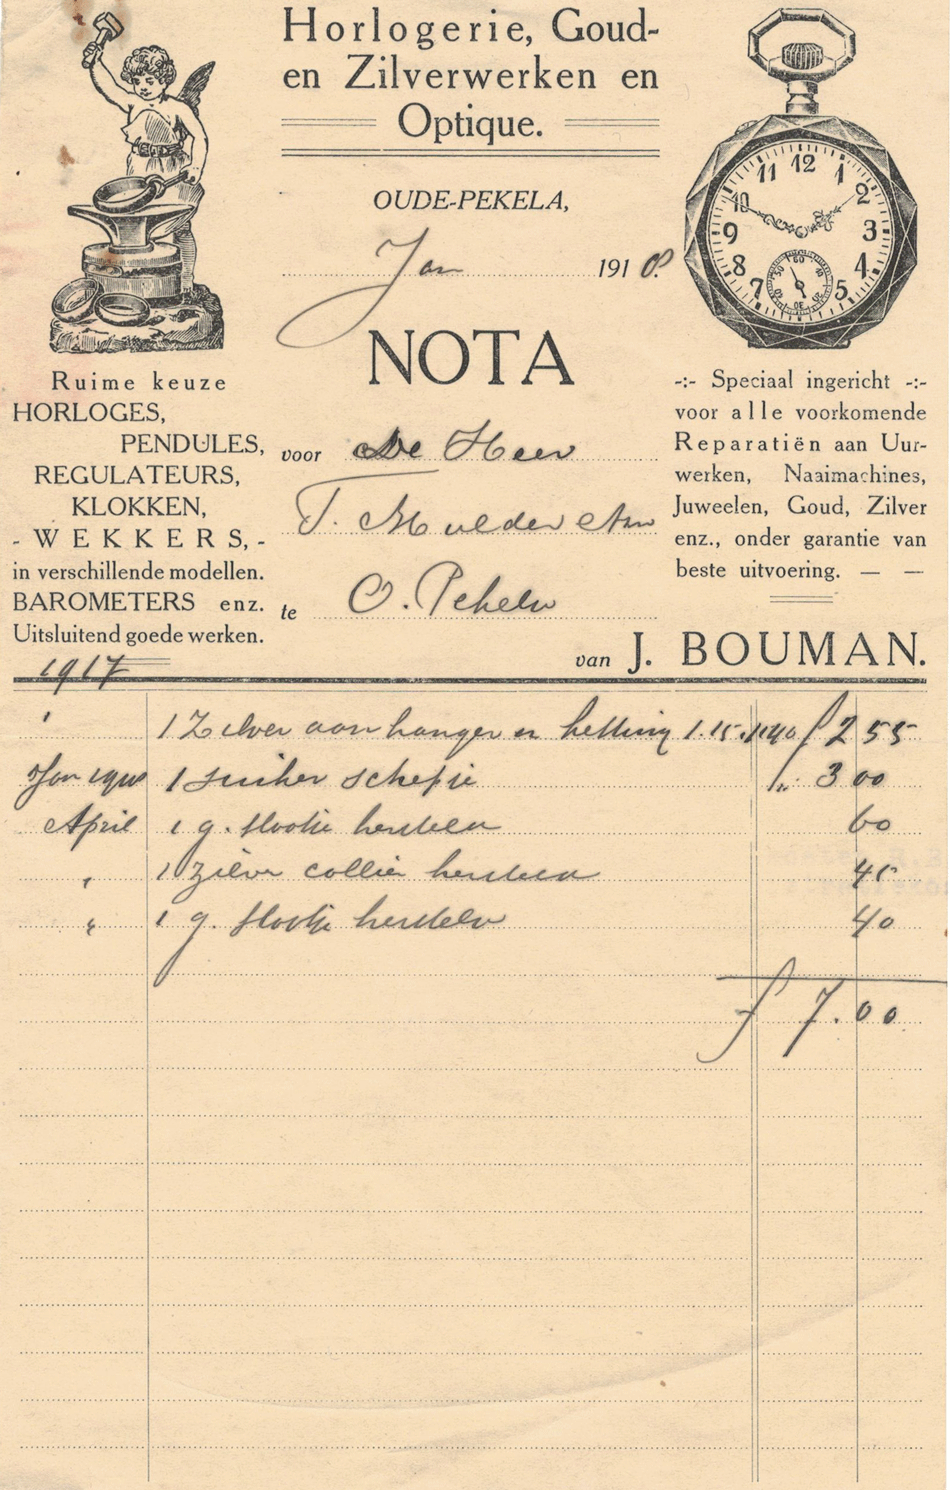 Horlogerie, Goud-
en Zilverwerken en
Optique.
OUDE-PEKELA,
Jan 1918
NOTA
voor De Heer
T. Mulder Azn
te O. Pekela
van J. BOUMAN.
Ruime keuze
HORLOGES,
PENDULES,
REGULATEURS,
KLOKKEN,
- WEKKERS, -
in verschillende modellen.
BAROMETERS enz.
Uitsluitend goede werken.
-:- Speciaal ingericht -:-
voor alle voorkomende
Reparatiën aan Uur-
werken, Naaimachines,
Juweelen, Goud, Zilver
enz., onder garantie van
beste uitvoering. — —
12
1
2
3
4
5
7
8
9
10
11
60
1917
1 Zilver aanhanger en ketting 1.15. 1.40 f 2 55
Jan 1918 1 suiker schepje " 3 00
April 1 g. slootje herstelen 60
" 1 zilver collier herstelen 45
" 1 g. slootje herstelen 40
f 7.00